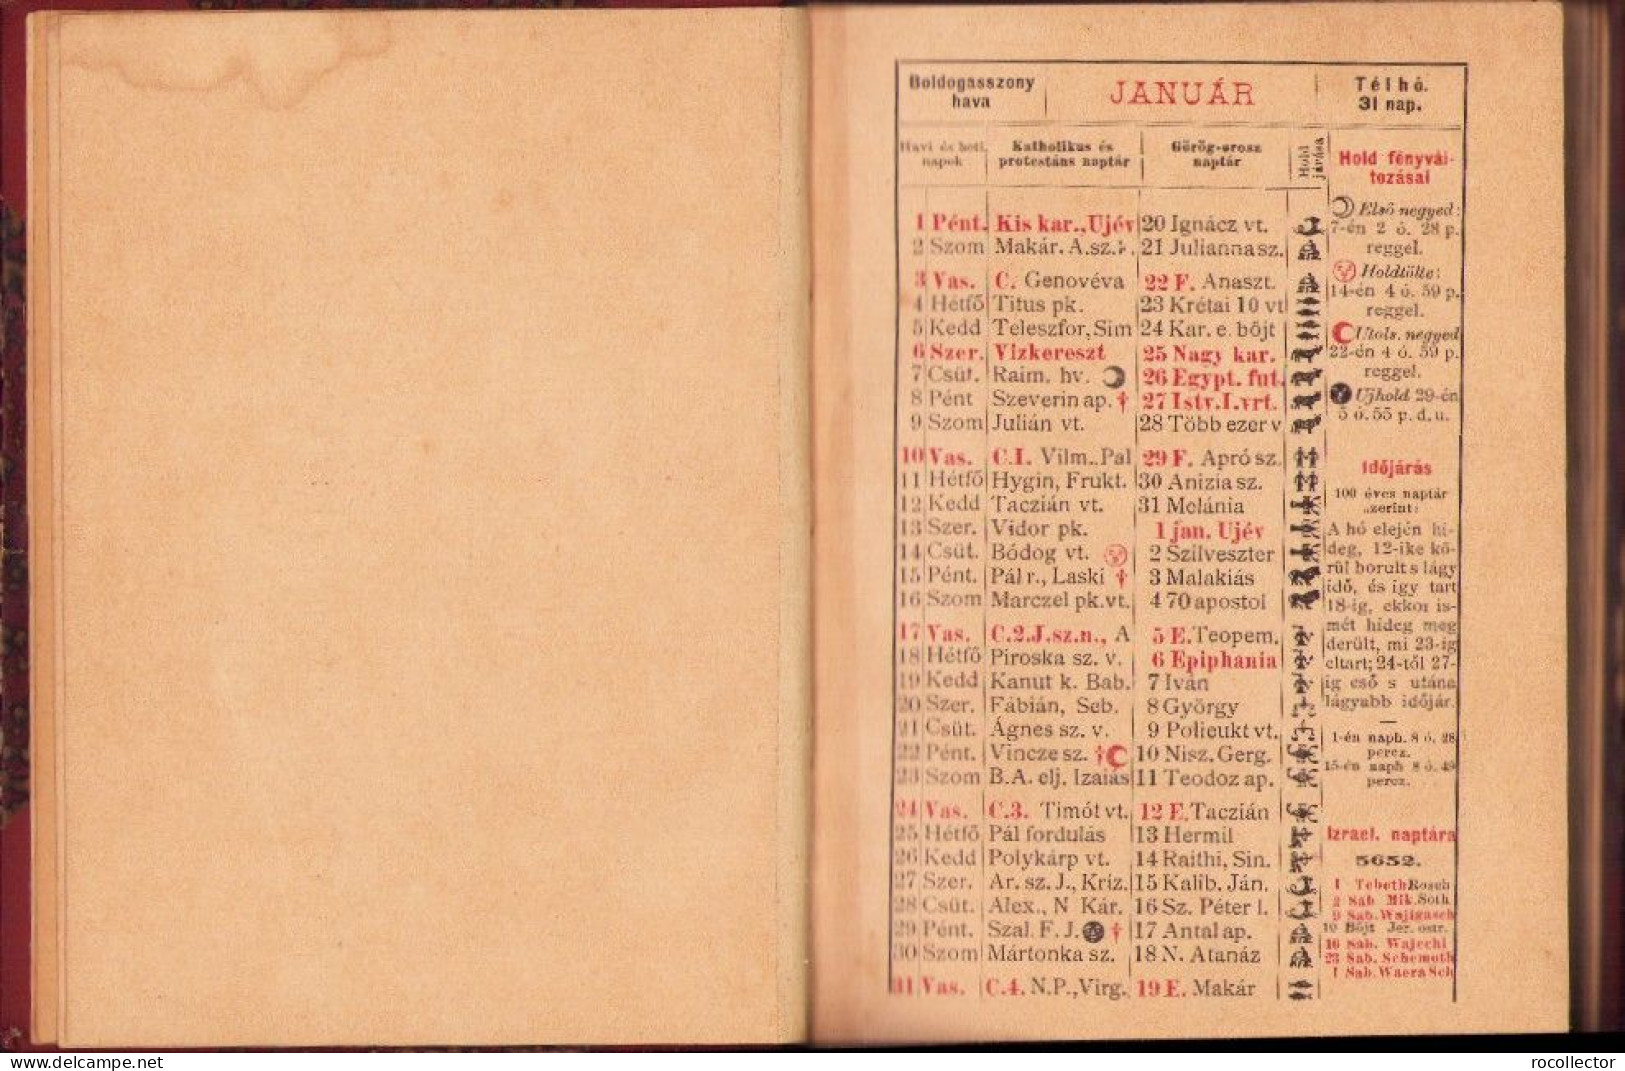 Boldogasszony
hava
JANUÁR
Télhó.
31 nap.
Havi és heti
napok
Katholikus és
protestáns naptár
Görög-orosz
naptár
Hold
járása
1 Pént. Kis kar., Ujév 20 Ignácz vt.
2 Szom Makár. A.sz. 21 Julianna sz.
3 Vas. C. Genovéva 22 F. Anaszt.
4 Hétfő Titus pk. 23 Krétai 10 vt
5 Kedd Teleszfor, Sim 24 Kar. e. bőjt
6 Szer. Vizkereszt 25 Nagy kar.
7 Csüt. Raim. hv. 26 Egypt. fut.
8 Pént Szeverin ap. † 27 Istv. I. vrt.
9 Szom Julián vt. 28 Több ezer v
10 Vas. C.I. Vilm.. Pal 29 F. Apró sz.
11 Hétfő Hygin, Frukt. 30 Anizia sz.
12 Kedd Taczián vt. 31 Melánia
13 Szer. Vidor pk. 1 jan. Ujév
14 Csüt. Bódog vt. 2 Szilveszter
15 Pént. Pál r., Laski † 3 Malakiás
16 Szom Marczel pk.vt. 4 70 apostol
17 Vas. C.2.J.sz.n., A 5 E. Teopem.
18 Hétfő Piroska sz. v. 6 Epiphania
19 Kedd Kanut k. Bab. 7 Iván
20 Szer. Fábián, Seb. 8 György
21 Csüt. Ágnes sz. v. 9 Polieukt vt.
22 Pént. Vincze sz. † 10 Nisz. Gerg.
23 Szom B.A. elj. Izaiás 11 Teodoz ap.
24 Vas. C.3. Timót vt. 12 E. Taczián
25 Hétfő Pál fordulás 13 Hermil
26 Kedd Polykárp vt. 14 Raithi, Sin.
27 Szer. Ar. sz. J., Kriz. 15 Kalib. Ján.
28 Csüt. Alex., N Kár. 16 Sz. Péter l.
29 Pént. Szal. F. J. † 17 Antal ap.
30 Szom Mártonka sz. 18 N. Atanáz
31 Vas. C.4. N.P., Virg. 19 E. Makár
Hold fényvál-
tozásai
Első negyed:
7-én 2 ó. 28 p.
reggel.
Holdtölte:
14-én 4 ó. 59 p.
reggel.
Utols. negyed
22-én 4 ó. 59 p.
reggel.
Ujhold 29-én
5 ó. 55 p. d. u.
Időjárás
100 éves naptár
szerint:
A hó elején hi-
deg, 12-ike kö-
rül borult s lágy
idő, és igy tart
18-ig, ekkor is-
mét hideg meg
derült, mi 23-ig
eltart; 24-től 27-
ig eső s utána
lágyabb időjár.
1-én naph. 8 ó. 28
percz.
15-én naph 8 ó. 49
percz.
Izrael. naptára
5652.
1 Tebeth Rosch
2 Sab Mik. Soth
9 Sab. Wajigasch
10 Bőjt Jer. ostr.
16 Sab. Wajechi
23 Sab. Schemoth
1 Sab. Waera Sch
delcampe.net
rocollector